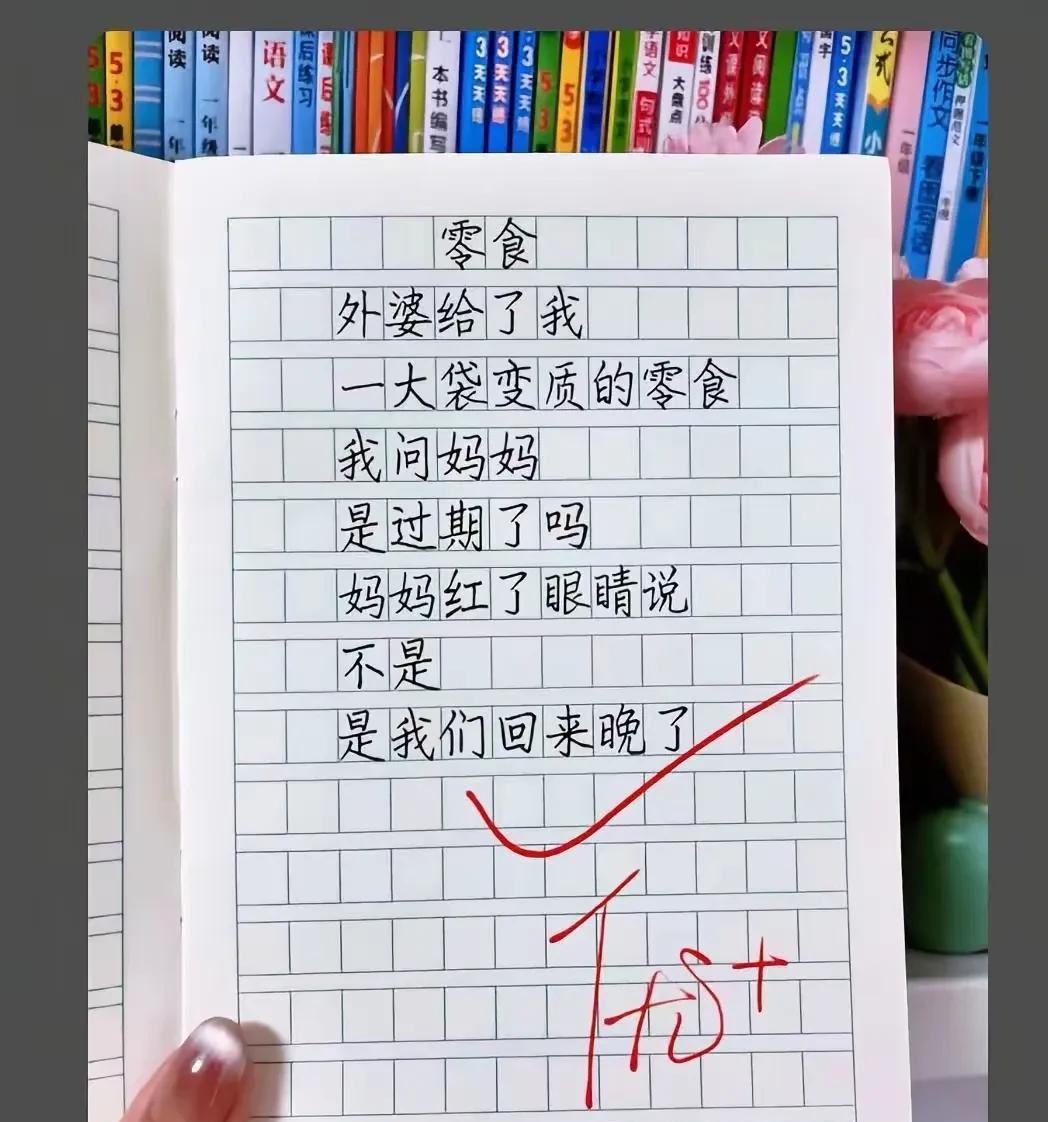 阅读
一年级
阅读
一年级
语文
课后练习
5·3
5·3
本书编写
5·3天天练
5·3天天练
句式训练
大盘点
5·3天天练
同步作文
一年级
看图写话
一年级下册
零食
外婆给了我
一大袋变质的零食
我问妈妈
是过期了吗
妈妈红了眼睛说
不是
是我们回来晚了
优+